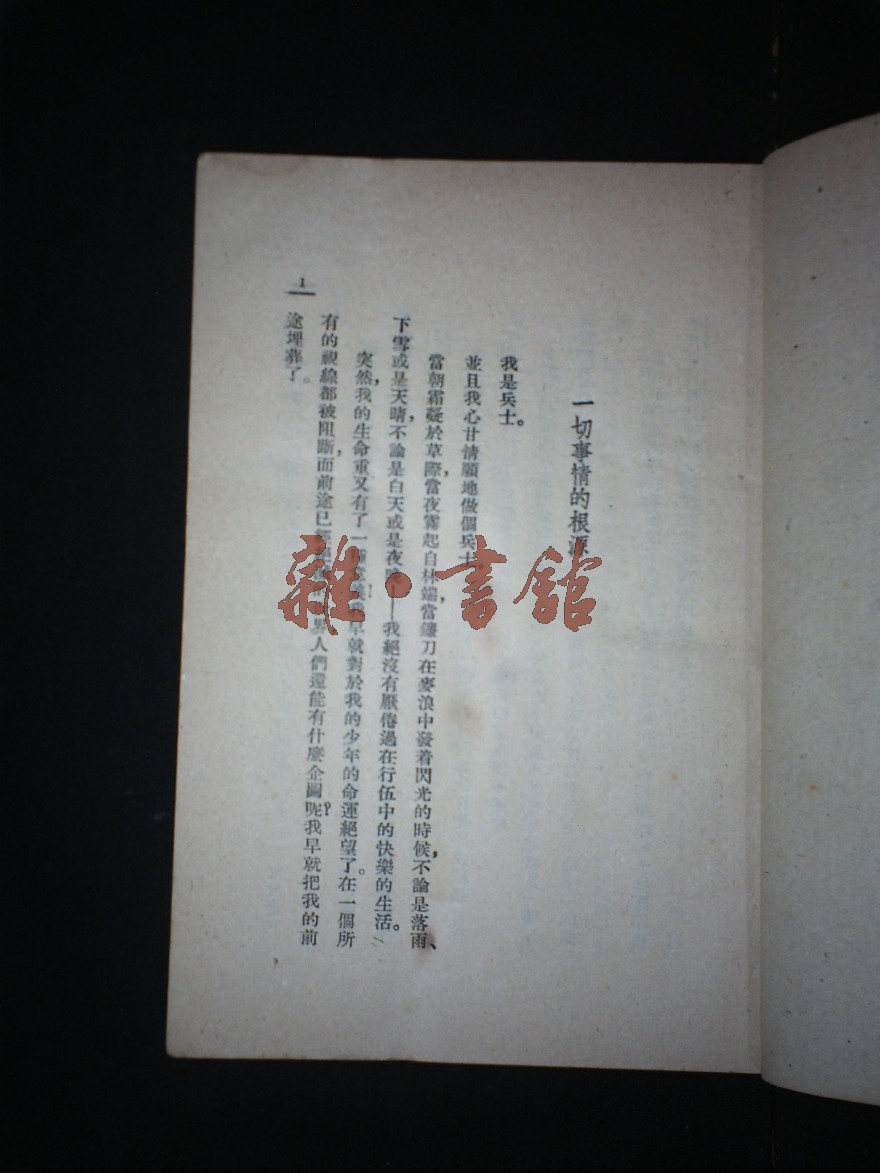 一切事情的根源
我是兵士。
並且我心甘情願地做個兵士
當朝霜凝於草際，當夜霧起自林端，當鐮刀在麥浪中發着閃光的時候，不論是落雨、
下雪或是天晴，不論是白天或是夜晚——我絕沒有厭倦過在行伍中的快樂的生活。
突然，我的生命重又有了一種 我早就對於我的少年的命運絕望了。在一個所
有的視線都被阻斷，而前途已經 界，人們還能有什麼企圖呢？我早就把我的前
途埋葬了。
1
雜·書館